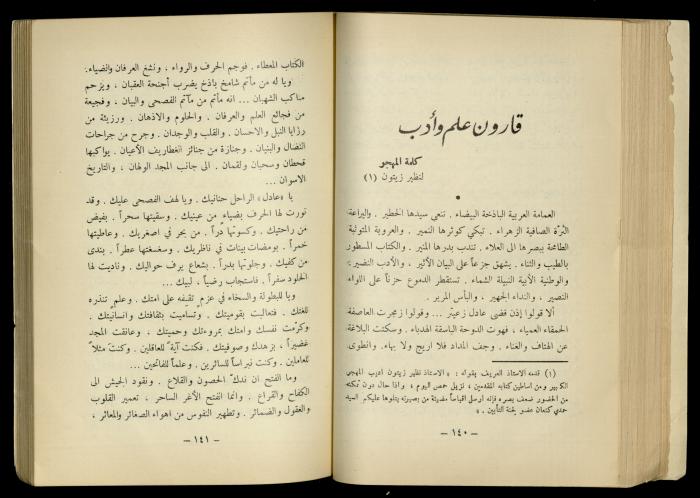 قارون علم وأدب
كلمة المهجر
لنظير زيتون (١)
العمامة العربية الباذخة البيضاء . تنعى سيدها الخطير . واليراعة
الثرّة الصافية الزهراء . تبكي كوثرها النمير . والعروبة المتوثبة
الطامحة ببصرها الى العلاء . تندب بدرها المنير . والكتاب المسطور
بالطيب والثناء . يشهق جزعاً على البيان الأثير . والأدب النضير .
والوطنية الأبية النبيلة الشماء . تستقطر الدموع حزناً على اللواء
النصير . والنداء الجهير . والبأس المرير .
ألا قولوا إذن قضى عادل زعيتر . . . وقولوا زمجرت العاصفة
الحمقاء العمياء . فهوت الدوحة الباسقة الهدباء . وسكتت البلاغة
عن الهتاف والغناء . وجف المداد فلا اريج ولا بهاء . وانطوى
(١) قدمه الاستاذ العريف بقوله : « الاستاذ نظير زيتون اديب المهجر
الكبير ومن اساطين كتابه المقدمين ، نزيل حمص اليوم ، واذا حال دون تمكنه
من الحضور ضعف بصره فإنه أرسل اقباساً مضيئة من بصيرته يتلوها عليكم السيد
حمدي كنعان عضو لجنة التأبين . »
— ١٤٠ —
الكتاب المعطاء . فوجم الحرف والرواء ، ونشج العرفان والضياء.
ويا له من مأتم شامخ باذخ يضرب أجنحة العقبان ، ويزحم
مناكب الشهبان . . . انه مأتم من مآتم الفصحى والبيان ، وفجيعة
من فجائع العلم والعرفان . والحلوم والاذهان . ورزيئة من
رزايا النبل والاحسان . والقلب والوجدان . وجرح من جراحات
النضال والبنيان . وجنازة من جنائز الغطاريف الأعيان . يواكبها
قحطان وسحبان ولقمان . الى جانب المجد الولهان ، والتاريخ
الاسوان . . .
يا « عادل » الراحل حنانيك . ويا لهف الفصحى عليك . وقد
نورت لها الحرف بضياء من عينيك . وسقيتها سحراً . بفيض
من راحتيك . وكسوتها دراً . من بحر في اصغريك . وعاطيتها
خمراً . بومضات بينات في ناظريك . وسغسغتها عطراً . بندى
من كفيك . وجلوتها بدراً . بشعاع يرف حواليك . وناديت لها
الخلود سفراً . فاستجاب رضياً ، لبيك . . .
ويا للبطولة والسخاء في عزم تقفه على امتك . وعلم تنذره
للغتك . فتعاليت بقوميتك . وتساميت بثقافتك وانسانيتك .
وكرّمت نفسك وامتك بمروءتك وحميتك ، وعانقت المجد
غضيراً ، بزهدك وصوفيتك . فكنت آية للعاقلين . وكنت مثلاً
للعاملين . وكنت نبراساً للسائرين ، وعلماً للفاتحين . . .
وما الفتح ان ندك الحصون والقلاع . ونقود الجيش الى
الكفاح والقراع . وانما الفتح الأغر الساحر ، تعمير القلوب
والعقول والضمائر . وتطهير النفوس من اهواء الصغائر والمعائر ،
— ١٤١ —